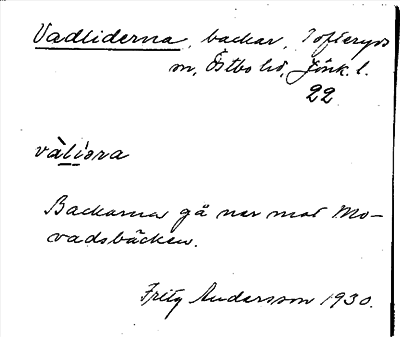 Vadliderna, backar, Tofteryds
sn, Östbo hd, Jönk. l.
22
vàliora
Backarna gå ner mot Mo-
vadsbäcken.
Fritz Andersson 1930.